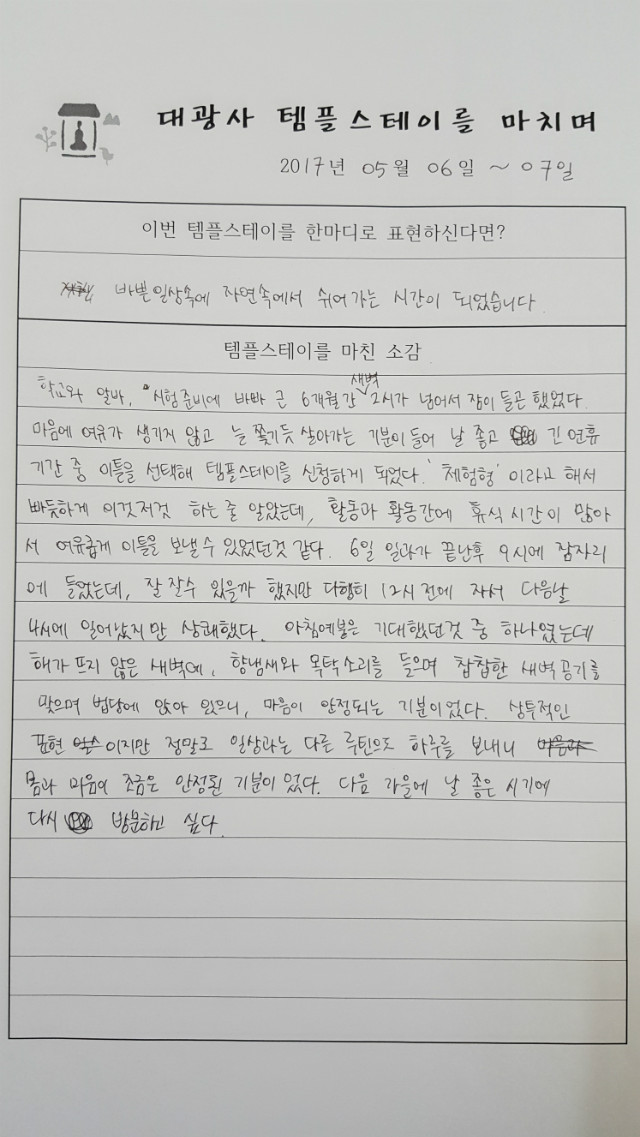 대광사 템플스테이를 마치며
2017년 05월 06일 ~ 07일
이번 템플스테이를 한마디로 표현하신다면?
바쁜 일상속에 자연속에서 쉬어가는 시간이 되었습니다
템플스테이를 마친 소감
학교와 알바, 시험준비에 바빠 근 6개월간 새벽 2시가 넘어서 잠이 들곤 했었다.
마음에 여유가 생기지 않고 늘 쫓기듯 살아가는 기분이 들어 날 좋고 긴 연휴
기간 중 이틀을 선택해 템플스테이를 신청하게 되었다. '체험형' 이라고 해서
빠듯하게 이것저것 하는 줄 알았는데, 활동과 활동간에 휴식 시간이 많아
서 여유롭게 이틀을 보낼 수 있었던것 같다. 6일 일과가 끝난후 9시에 잠자리
에 들었는데, 잘 잘수 있을까 했지만 다행히 12시 전에 자서 다음날
4시에 일어났지만 상쾌했다. 아침예불은 기대했던것 중 하나였는데
해가 뜨지 않은 새벽에, 향냄새와 목탁소리를 들으며 찹찹한 새벽공기를
맞으며 법당에 앉아 있으니, 마음이 안정되는 기분이었다. 상투적인
표현 이지만 정말로 일상과는 다른 루틴으로 하루를 보내니
몸과 마음이 조금은 안정된 기분이었다. 다음 가을에 날 좋은 시기에
다시 방문하고 싶다.